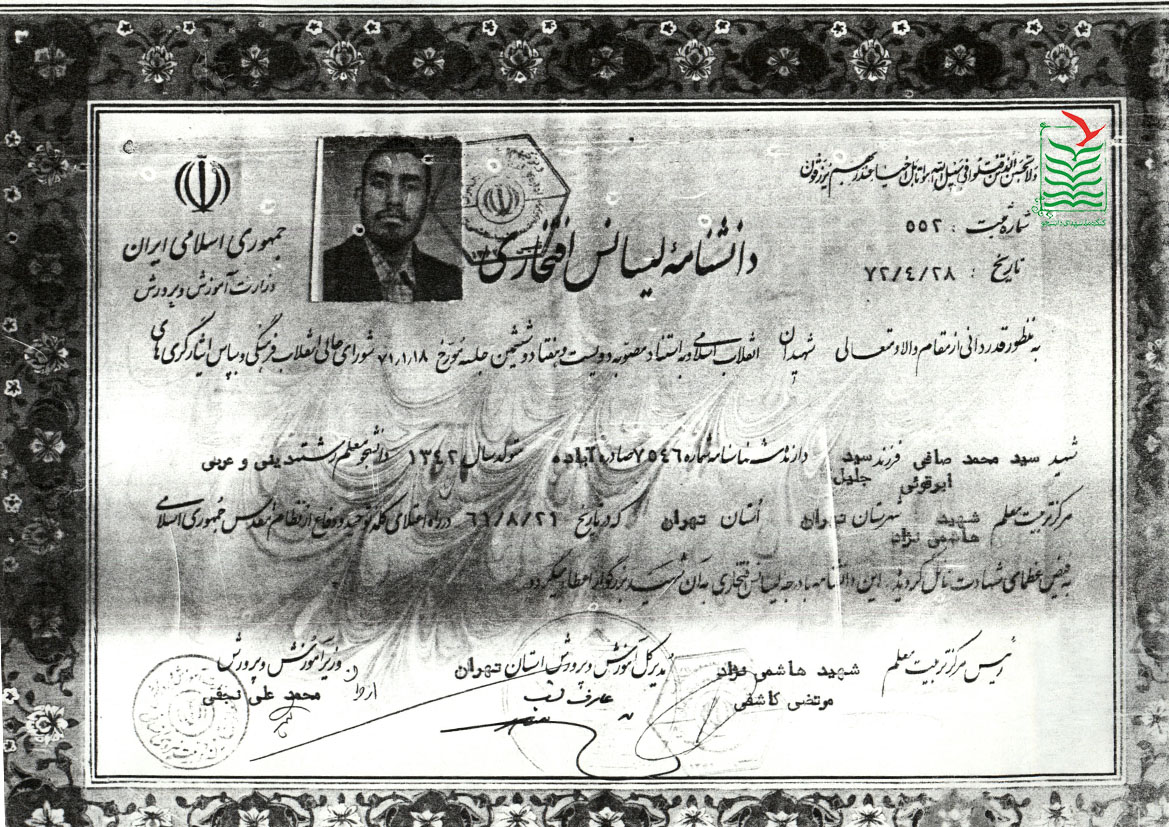 ولا تحسبن الذین قتلوا فی سبیل الله امواتا بل احیاء عند ربهم یرزقون
شماره ثبت : ۵۵۲
تاریخ : ۷۲/۴/۲۸
جمهوری اسلامی ایران
وزارت آموزش و پرورش
دانشنامه لیسانس افتخاری
به منظور قدردانی از مقام والا و متعالی شهیدان انقلاب اسلامی و به استناد مصوبه دویست و هفتاد و ششمین جلسه مورخ ۷۱,۱,۱۸ شورای عالی انقلاب فرهنگی و بپاس ایثارگری های
شهید سید محمد صافی ابرقوئی فرزند سید جلیل دارنده شناسنامه شماره ۷۵۴۶ صادره آباده متولد سال ۱۳۴۲ دانشجو معلم رشته دینی و عربی
مرکز تربیت معلم شهید هاشمی نژاد شهرستان تهران استان تهران که در تاریخ ۶۱/۸/۲۱ در راه اعتلای کلمه توحید و دفاع از نظام مقدس جمهوری اسلامی
به فیض عظمای شهادت نائل گردیده این دانشنامه با درجه لیسانس افتخاری به آن شهید بزرگوار اعطا میگردد.
رئیس مرکز تربیت معلم شهید هاشمی نژاد
مرتضی کاشفی
مدیر کل آموزش و پرورش استان تهران
عارف
وزیر آموزش و پرورش
محمد علی نجفی